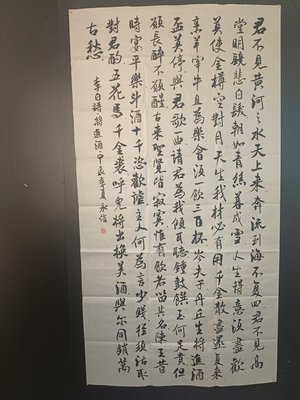 君不見黃河之水天上來奔流到海不復回君不見高
堂明鏡悲白髮朝如青絲暮成雪人生得意須盡歡
莫使金樽空對月天生我材必有用千金散盡還復來
烹羊宰牛且為樂會須一飲三百杯岑夫子丹丘生將進酒
盃莫停與君歌一曲請君為我傾耳聽鐘鼓饌玉何足貴但
願長醉不願醒古來聖賢皆寂寞惟有飲者留其名陳王昔
時宴平樂斗酒十千恣歡謔主人何為言少錢徑須沽取
對君酌五花馬千金裘呼兒將出換美酒與爾同銷萬
古愁
李白詩將進酒甲辰季夏永信